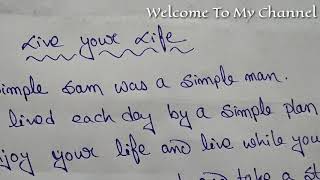 Welcome To My Channel
Live your Life
Simple Sam was a simple man.
lived each day by a simple plan
njoy your life and live while you
take a